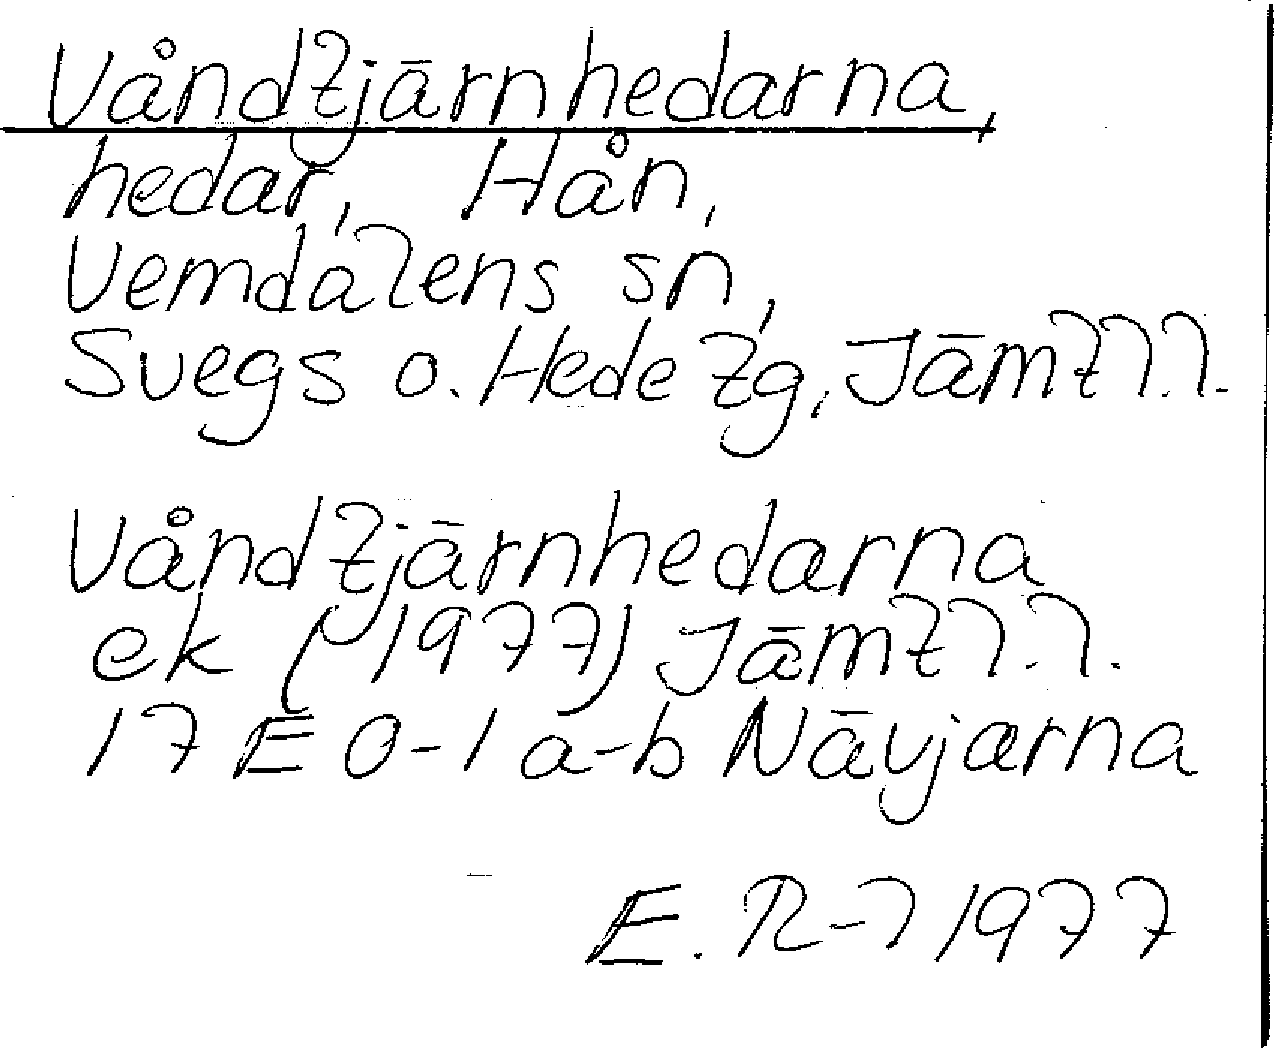 Våndtjärnhedarna,
hedar, Hån,
Vemdalens sn,
Svegs o. Hede tg, Jämtl. l.
Våndtjärnhedarna
ek (1977) Jämtl. l.
17 E 0-1 a-b Nävjarna
E. R-l 1977